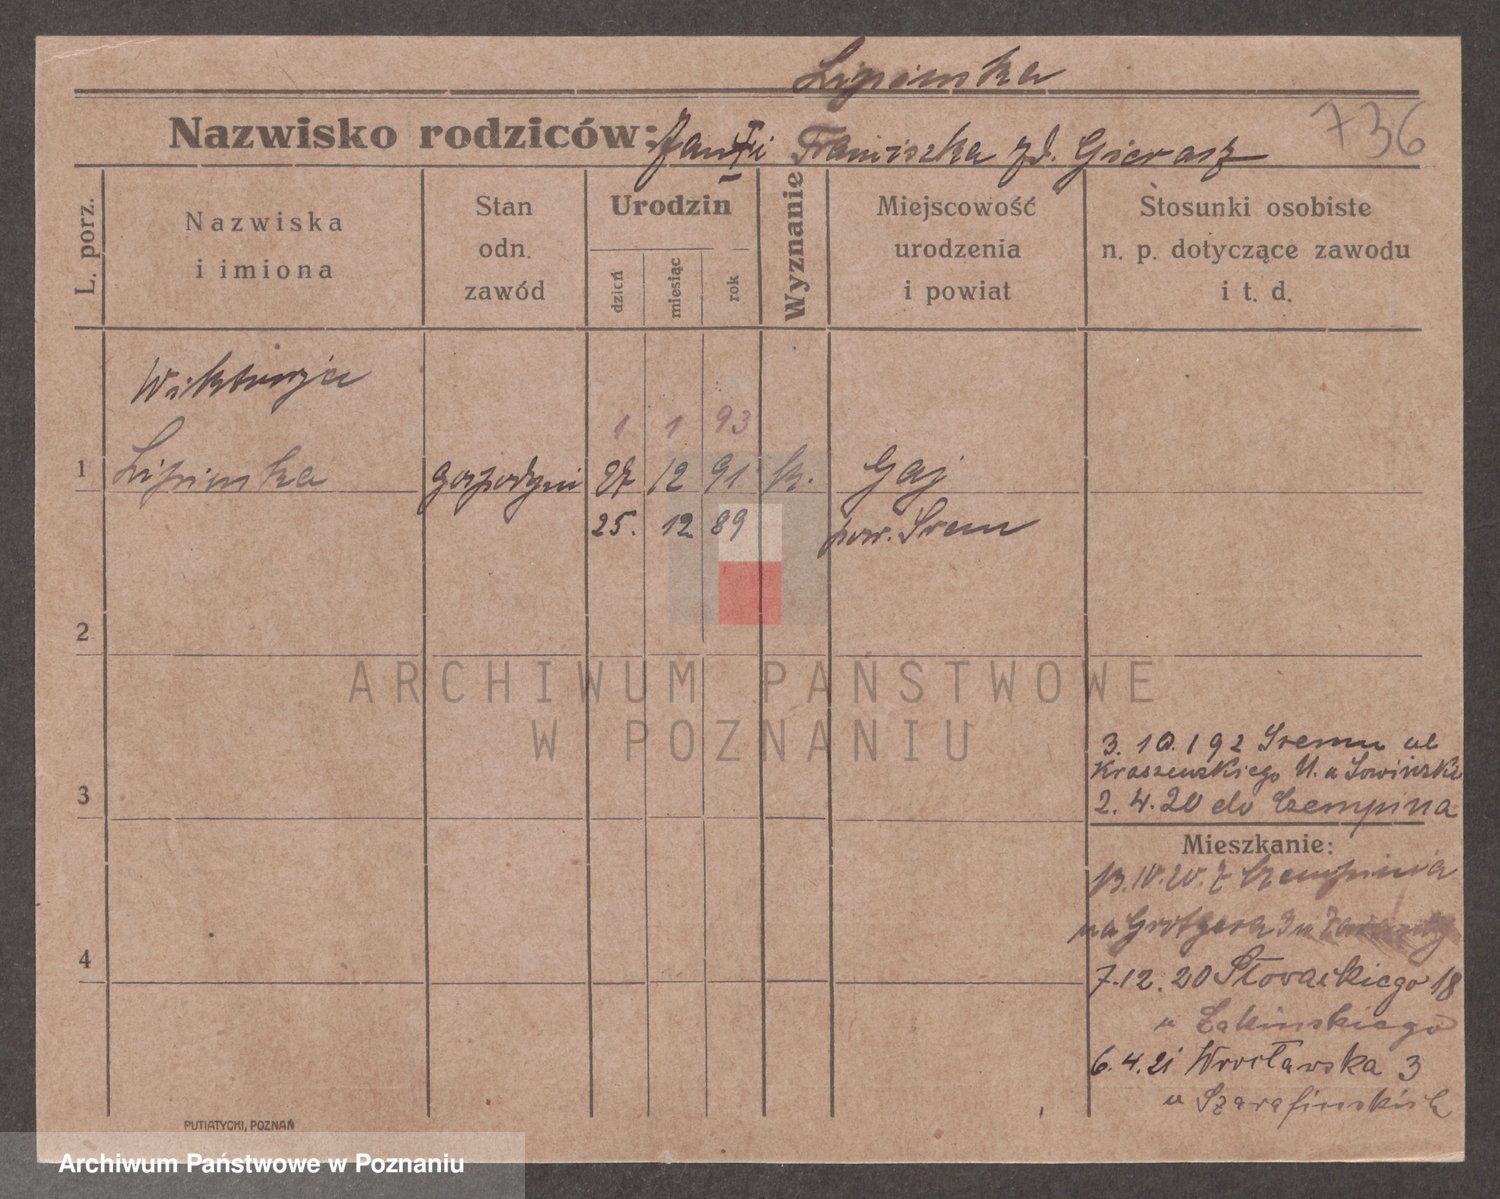 Lipinska
736
Nazwisko rodziców: Jan i Franciszka zd. Gierasz
L. porz.
Nazwiska
i imiona
Stan
odn.
zawód
Urodzin
dzień
miesiąc
rok
Wyznanie
Miejscowość
urodzenia
i powiat
Stosunki osobiste
n. p. dotyczące zawodu
i t. d.
Wiktorja
1 1 93
1 Lipinska gospodyni 27 12 91 k. Gaj
25. 12 89 pow. Srem
2
ARCHIWUM PAŃSTWOWE
W POZNANIU
3. 10. 192 Sremu ul
Kraszewskiego 11. u Sowinski
3
2. 4. 20 do Czempina
Mieszkanie:
13.IV.20. z Czempinia
na Grotgera 3 u
4
7.12.20 Słowackiego 18
u Łakinskiego
6.4.21 Wrocławska 3
u Szarafinskich
PUTIATYCKI, POZNAŃ
Archiwum Państwowe w Poznaniu